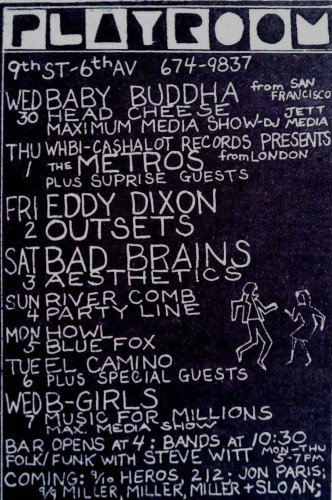 PLAYROOM
9th ST-6th AV 674-9837
WED BABY BUDDHA from SAN FRANCISCO
30 HEAD CHEESE
MAXIMUM MEDIA SHOW-DJ JETT MEDIA
THU WHBI-CASHALOT RECORDS PRESENTS
1 THE METROS from LONDON
PLUS SUPRISE GUESTS
FRI EDDY DIXON
2 OUTSETS
SAT BAD BRAINS
3 AESTHETICS
SUN RIVER COMB
4 PARTY LINE
MON HOWL
5 BLUE FOX
TUE EL CAMINO
6 PLUS SPECIAL GUESTS
WED B-GIRLS
7 MUSIC FOR MILLIONS
MAX. MEDIA SHOW
BAR OPENS AT 4: BANDS AT 10:30
FOLK/FUNK WITH STEVE WITT MON-THU 5-7PM
COMING: 9/10 HEROS, 212. JON PARIS.
9/9 MILLER, MILLER, MILLER + SLOAN;